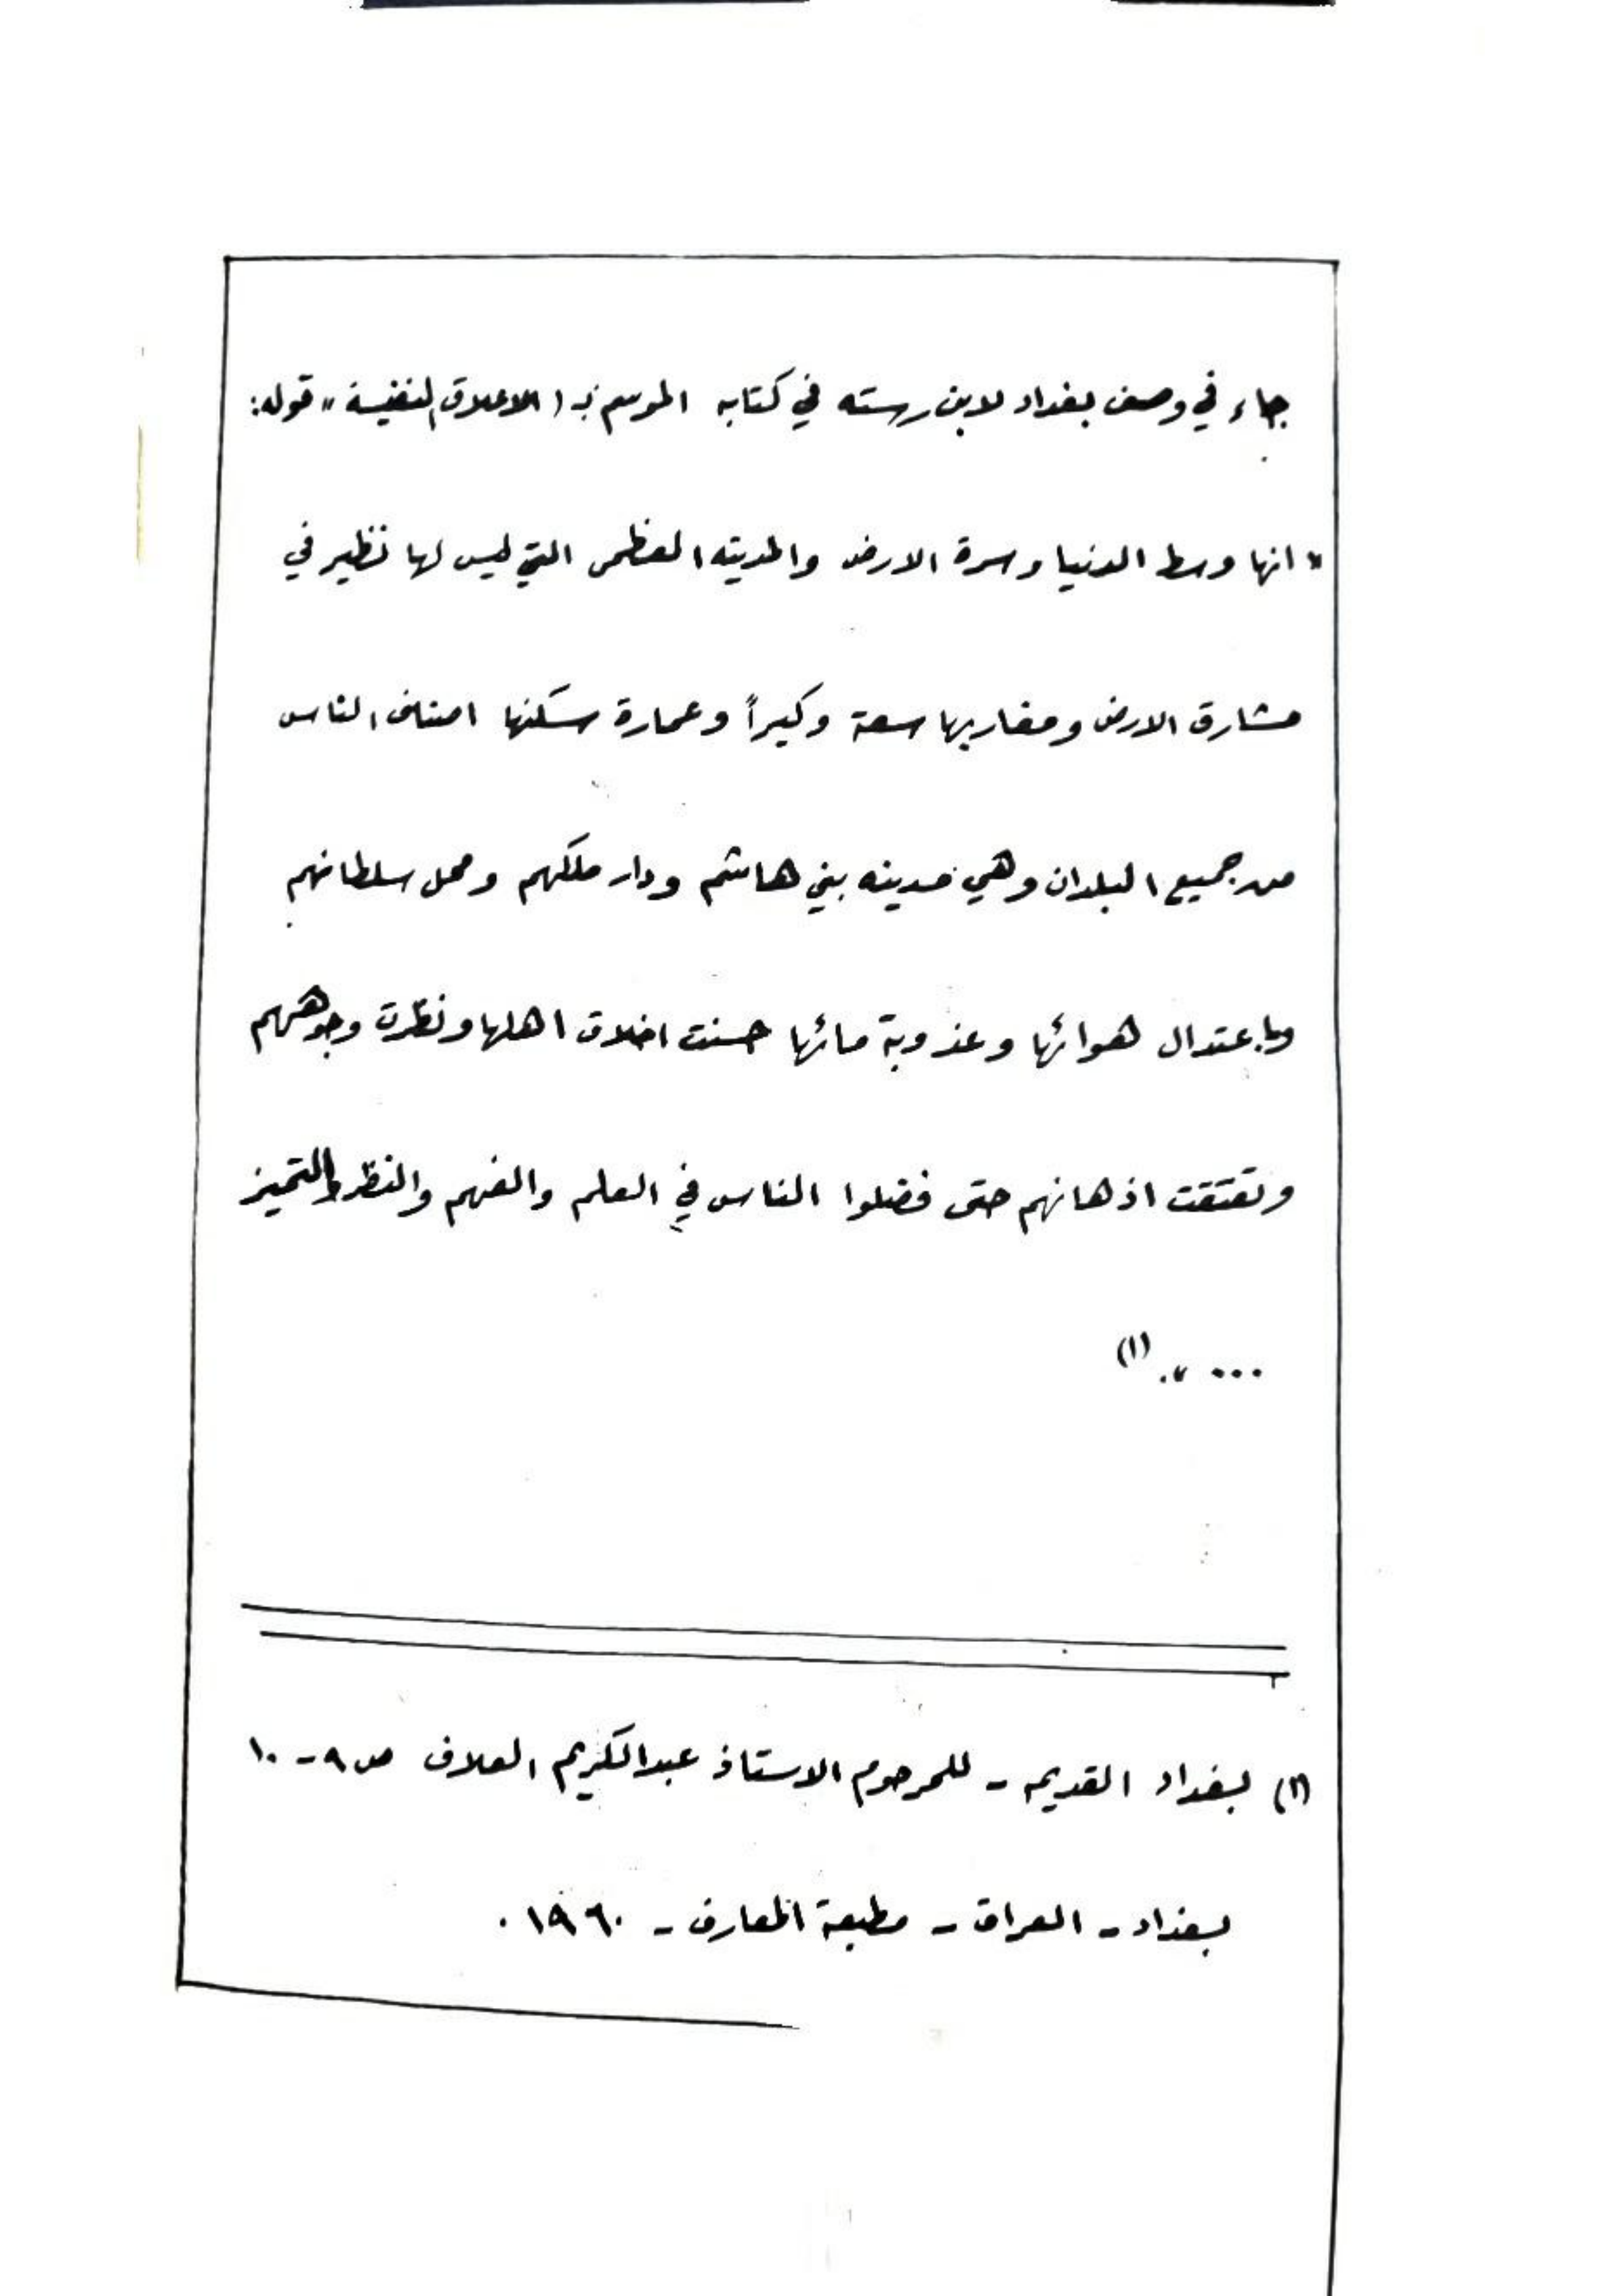 جاء في وصف بغداد لابن رسته في كتابه الموسم بـ (الاعلاق النفيسة" قوله:
"انها وسط الدنيا وسرة الارض والمدينه العظمى التي ليس لها نظير في
مشارق الارض ومغاربها سعة وكبيراً وعمارة سكنها اصناف الناس
من جميع البلدان وهي مدينه بني هاشم ودار ملكهم ومحل سلطانهم
وباعتدال هوائها وعذوبة مائها حسنت اخلاق اهلها ونظرت وجوههم
وتفتقت اذهانهم حتى فضلوا الناس في العلم والفهم والنظر والتميز
... ". (١)
(١) بغداد القديمه - للمرحوم الاستاذ عبدالكريم العلاف ص ٩ - ١٠
بغداد - العراق - مطبعة المعارف - ١٩٦٠.